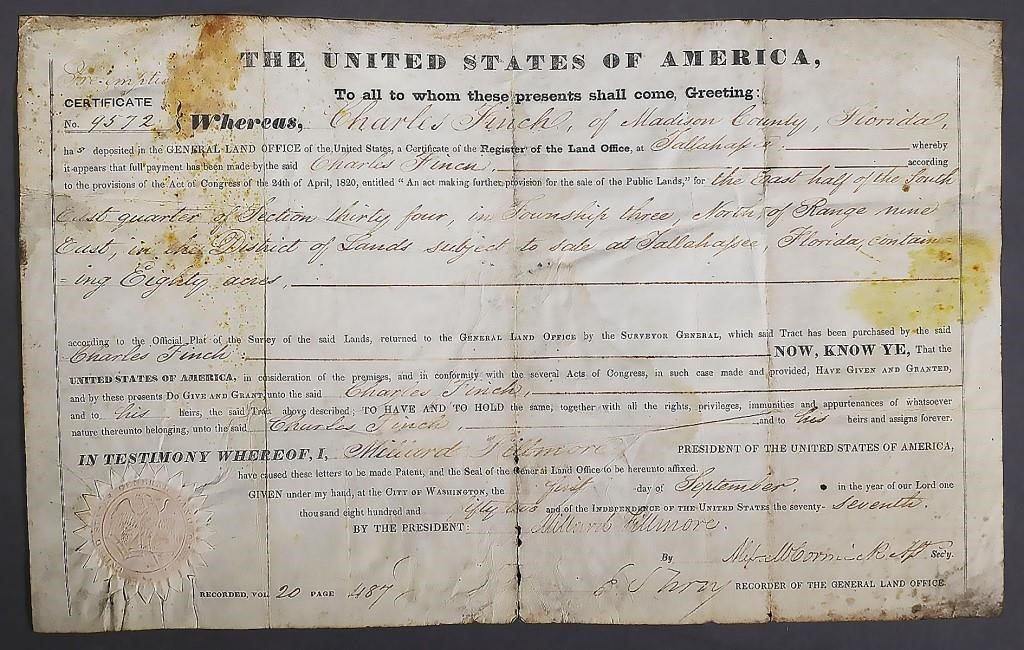 THE UNITED STATES OF AMERICA,
Pre-emption
CERTIFICATE
No. 9572
To all to whom these presents shall come, Greeting:
Whereas, Charles Finch, of Madison County, Florida,
has deposited in the GENERAL LAND OFFICE of the United States, a Certificate of the Register of the Land Office, at Tallahassee whereby
it appears that full payment has been made by the said Charles Finch, according
to the provisions of the Act of Congress of the 24th of April, 1820, entitled "An act making further provision for the sale of the Public Lands," for the East half of the South
East quarter of Section thirty four, in Township three, North, of Range nine
East, in the District of Lands subject to sale at Tallahassee, Florida, contain=
=ing Eighty acres,
according to the Official Plat of the Survey of the said Lands, returned to the GENERAL LAND OFFICE by the SURVEYOR GENERAL, which said Tract has been purchased by the said
Charles Finch: NOW, KNOW YE, That the
UNITED STATES OF AMERICA, in consideration of the premises, and in conformity with the several Acts of Congress, in such case made and provided, HAVE GIVEN AND GRANTED,
and by these presents DO GIVE AND GRANT, unto the said Charles Finch,
and to his heirs, the said Tract above described; TO HAVE AND TO HOLD the same, together with all the rights, privileges, immunities and appurtenances of whatsoever
nature thereunto belonging, unto the said Charles Finch, and to his heirs and assigns forever.
IN TESTIMONY WHEREOF, I, Millard Fillmore PRESIDENT OF THE UNITED STATES OF AMERICA,
have caused these letters to be made Patent, and the Seal of the General Land Office to be hereunto affixed.
GIVEN under my hand, at the CITY OF WASHINGTON, the first day of September. in the year of our Lord one
thousand eight hundred and fifty two and of the INDEPENDENCE OF THE UNITED STATES the seventy- seventh.
BY THE PRESIDENT: Millard Fillmore.
By Alex McCormick Asst Sec'y.
RECORDED, VOL. 20 PAGE 487 RECORDER OF THE GENERAL LAND OFFICE.